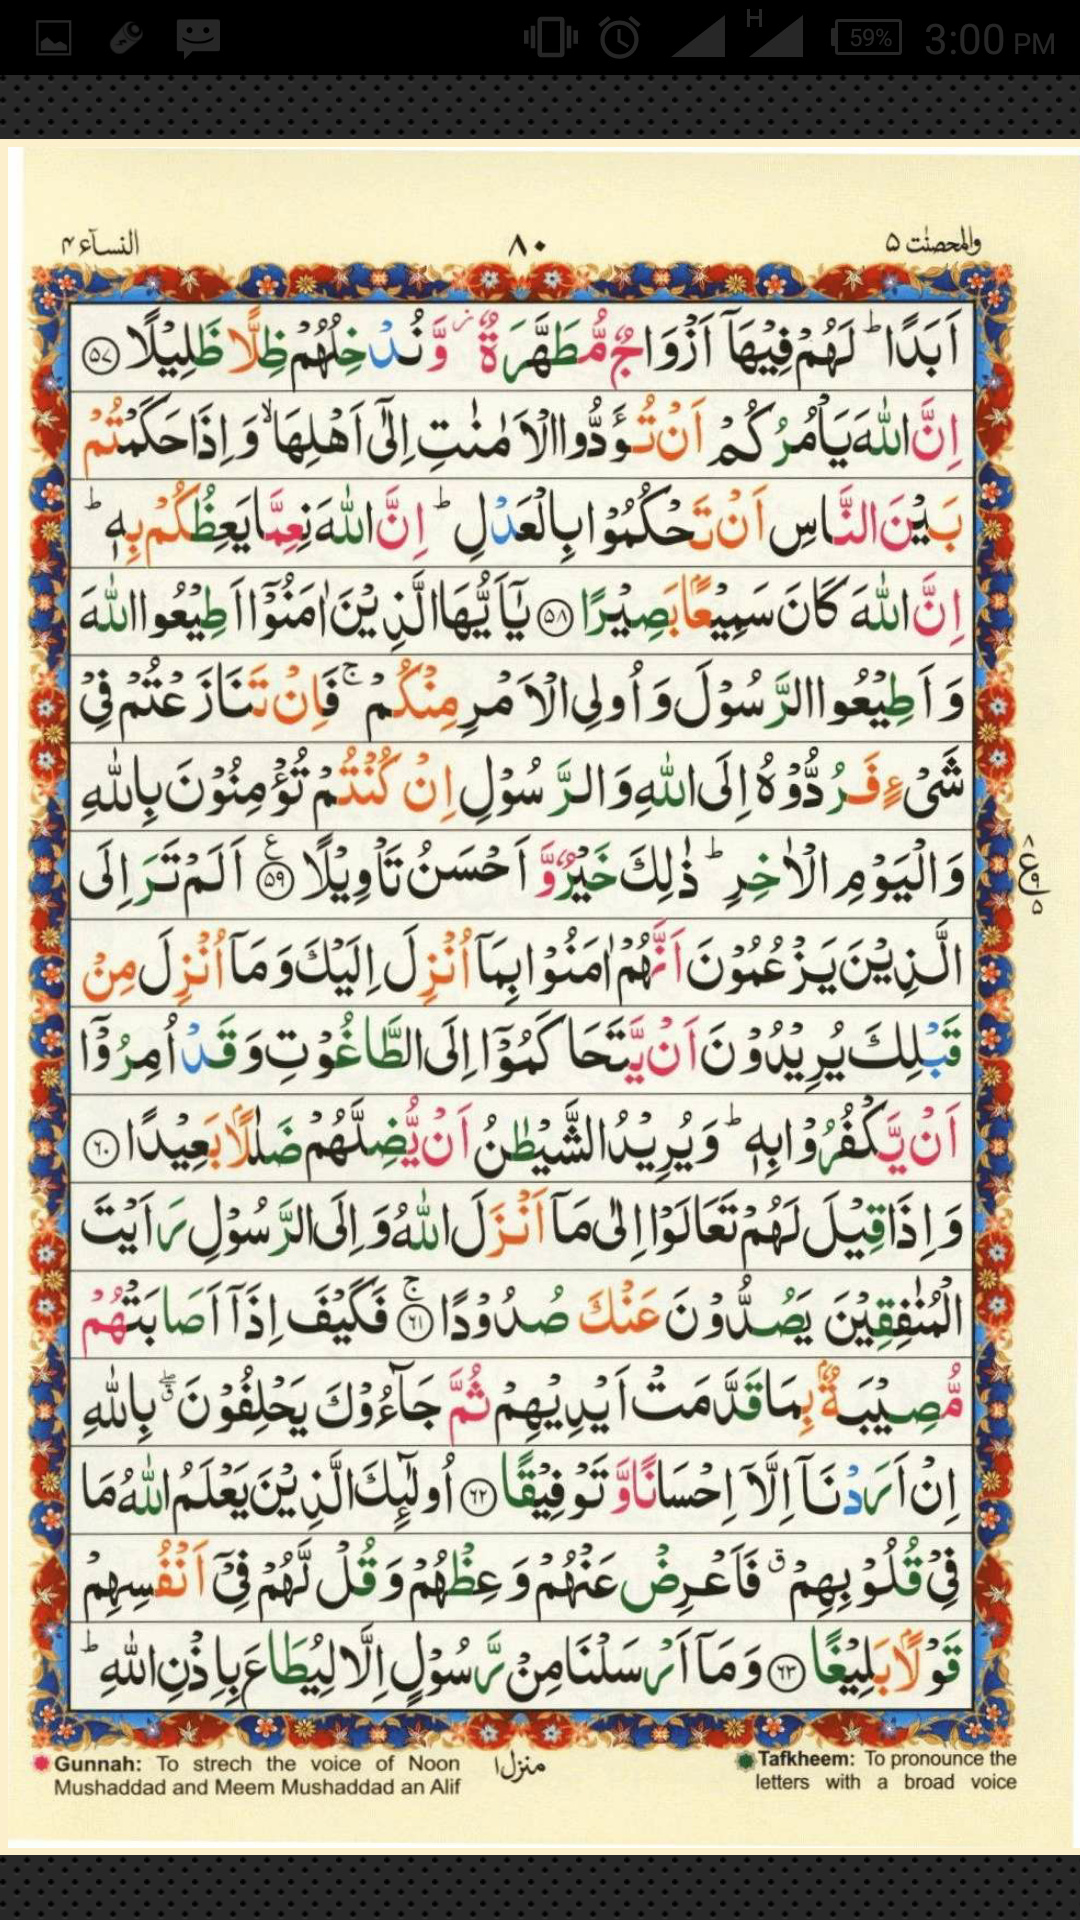 59% 3:00 PM
H
النسآء ۴ ۸۰ والمحصنٰت ۵
اَبَدًا ؕ لَهُمْ فِيْهَاۤ اَزْوَاجٌ مُّطَهَّرَةٌ ؗ وَّ نُدْخِلُهُمْ ظِلًّا ظَلِيْلًا ﴿۵۷﴾
اِنَّ اللّٰهَ يَاْمُرُكُمْ اَنْ تُؤَدُّوا الْاَمٰنٰتِ اِلٰۤى اَهْلِهَا ۙ وَ اِذَا حَكَمْتُمْ
بَيْنَ النَّاسِ اَنْ تَحْكُمُوْا بِالْعَدْلِ ؕ اِنَّ اللّٰهَ نِعِمَّا يَعِظُكُمْ بِهٖ ؕ
اِنَّ اللّٰهَ كَانَ سَمِيْعًۢا بَصِيْرًا ﴿۵۸﴾ يٰۤاَيُّهَا الَّذِيْنَ اٰمَنُوْۤا اَطِيْعُوا اللّٰهَ
وَ اَطِيْعُوا الرَّسُوْلَ وَ اُولِى الْاَمْرِ مِنْكُمْ ۚ فَاِنْ تَنَازَعْتُمْ فِىْ
شَىْءٍ فَرُدُّوْهُ اِلَى اللّٰهِ وَ الرَّسُوْلِ اِنْ كُنْتُمْ تُؤْمِنُوْنَ بِاللّٰهِ
وَ الْيَوْمِ الْاٰخِرِ ؕ ذٰلِكَ خَيْرٌ وَّ اَحْسَنُ تَاْوِيْلًا ﴿۵۹﴾ ع اَلَمْ تَرَ اِلَى
۸ ع ۹ ۵
الَّذِيْنَ يَزْعُمُوْنَ اَنَّهُمْ اٰمَنُوْا بِمَاۤ اُنْزِلَ اِلَيْكَ وَ مَاۤ اُنْزِلَ مِنْ
قَبْلِكَ يُرِيْدُوْنَ اَنْ يَّتَحَاكَمُوْۤا اِلَى الطَّاغُوْتِ وَ قَدْ اُمِرُوْۤا
اَنْ يَّكْفُرُوْا بِهٖ ؕ وَ يُرِيْدُ الشَّيْطٰنُ اَنْ يُّضِلَّهُمْ ضَلٰلًۢا بَعِيْدًا ﴿۶۰﴾
وَ اِذَا قِيْلَ لَهُمْ تَعَالَوْا اِلٰى مَاۤ اَنْزَلَ اللّٰهُ وَ اِلَى الرَّسُوْلِ رَاَيْتَ
الْمُنٰفِقِيْنَ يَصُدُّوْنَ عَنْكَ صُدُوْدًا ﴿۶۱﴾ ۚ فَكَيْفَ اِذَاۤ اَصَابَتْهُمْ
مُّصِيْبَةٌۢ بِمَا قَدَّمَتْ اَيْدِيْهِمْ ثُمَّ جَآءُوْكَ يَحْلِفُوْنَ ۖۗ بِاللّٰهِ
اِنْ اَرَدْنَاۤ اِلَّاۤ اِحْسَانًا وَّ تَوْفِيْقًا ﴿۶۲﴾ اُولٰٓئِكَ الَّذِيْنَ يَعْلَمُ اللّٰهُ مَا
فِىْ قُلُوْبِهِمْ ۗ فَاَعْرِضْ عَنْهُمْ وَ عِظْهُمْ وَ قُلْ لَّهُمْ فِىْۤ اَنْفُسِهِمْ
قَوْلًۢا بَلِيْغًا ﴿۶۳﴾ وَ مَاۤ اَرْسَلْنَا مِنْ رَّسُوْلٍ اِلَّا لِيُطَاعَ بِاِذْنِ اللّٰهِ ؕ
Gunnah: To strech the voice of Noon
Mushaddad and Meem Mushaddad an Alif
منزل ۱
Tafkheem: To pronounce the
letters with a broad voice